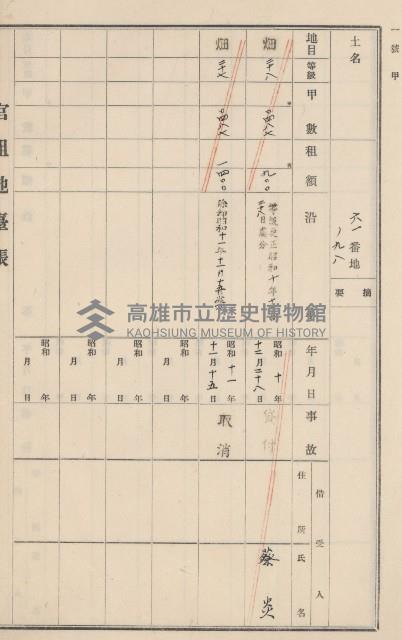 一號甲
土名
六一番地
ノ九八
摘要
地目 等級 甲數 租額 沿
年月日 事故 借受人
住所 氏名
畑 三八 〇四八七 九〇〇
等級更正昭和十年十
二月二十八日處分
昭和十年
十二月二十八日
貸付
蔡炎
畑 三七 〇四八七 一四〇〇
除却昭和十一年十一月十五日
昭和十一年
十一月十五日
取消
昭和 年
月 日
昭和 年
月 日
昭和 年
月 日
昭和 年
月 日
官租地臺帳
高雄市立歷史博物館
KAOHSIUNG MUSEUM OF HISTORY